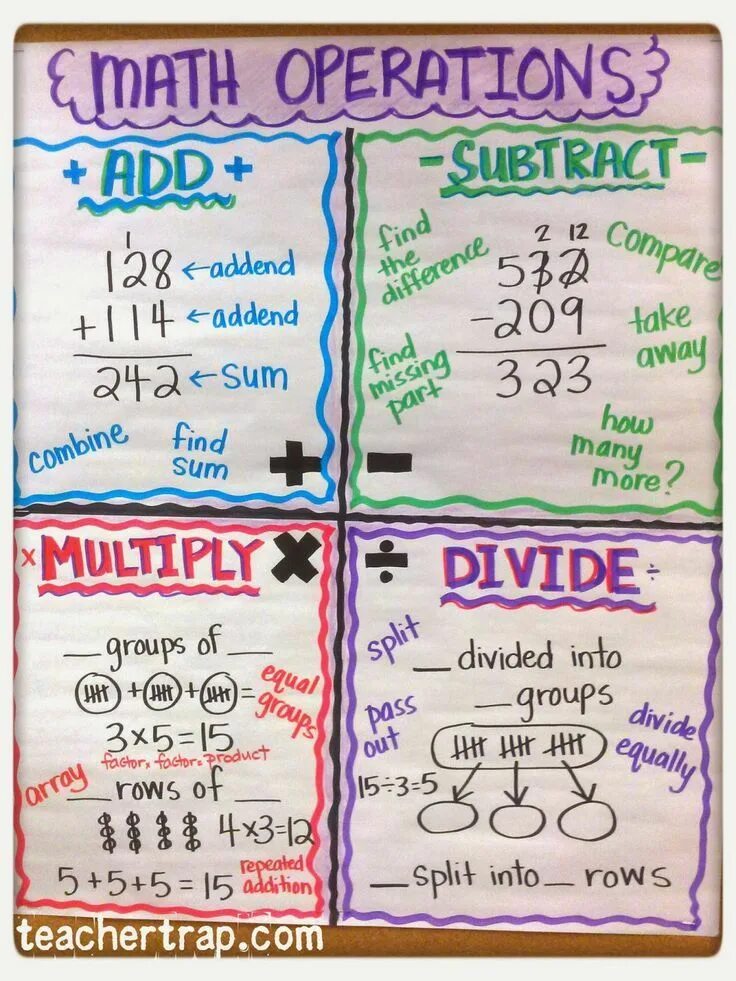 MATH OPERATIONS
+ ADD +
1
128 ←addend
+114 ←addend
242 ←sum
combine
find
sum
+
-SUBTRACT-
find
the
difference
2 12
532
-209
323
Compare
take
away
find
missing
part
how
many
more?
−
x MULTIPLY X
__groups of __
+ + =
equal
groups
3×5=15
factor x factor = product
array
__ rows of __
4×3=12
5+5+5=15
repeated
addition
÷ DIVIDE ÷
split
__ divided into
__ groups
pass
out
divide
equally
15÷3=5
__ split into __ rows
teachertrap.com